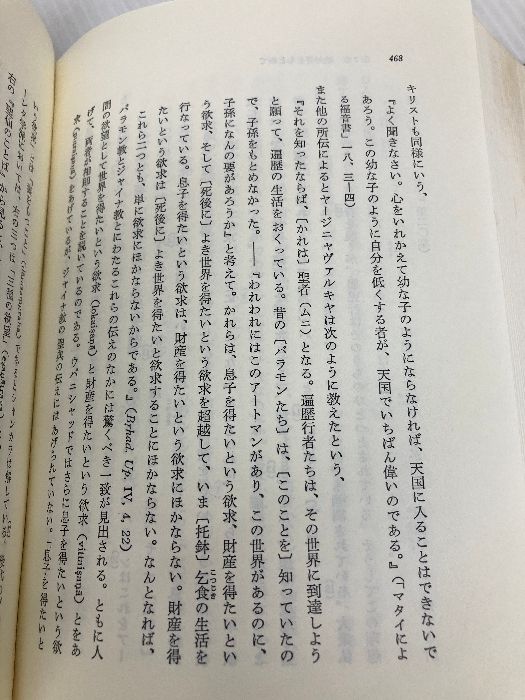 468
キリストも同様にいう、
『よく聞きなさい。心をいれかえて幼な子のようにならなければ、天国に入ることはできないで
あろう。この幼な子のように自分を低くする者が、天国でいちばん偉いのである。』(「マタイによ
る福音書」一八、三―四)
また他の所伝によるとヤージニャヴァルキヤは次のように教えたという、
『それを知ったならば、〔かれは〕聖者(ムニ)となる。遍歴行者たちは、その世界に到達しよう
と願って、遍歴の生活をおくっている。昔の〔バラモンたち〕は、〔このことを〕知っていたの
で、子孫をもとめなかった。――『われわれにはこのアートマンがあり、この世界があるのに、
子孫になんの要があろうか』と考えて。かれらは、息子を得たいという欲求、財産を得たいとい
う欲求、そして〔死後に〕よき世界を得たいという欲求を超越して、いま〔托鉢〕乞食の生活を
行なっている。息子を得たいという欲求は、財産を得たいという欲求にほかならない。財産を得
たいという欲求は〔死後に〕よき世界を得たいと欲求することにほかならない。なんとなれば、
これら二つとも、単に欲求にほかならないからである。』(Bṛhad. Up. IV, 4, 22)
バラモン教とジャイナ教とにわたるこれらの伝えのなかには驚くべき一致が見出される。ともに人
間の欲望として世界を得たいという欲求(lokaiṣaṇā)と財産を得たいという欲求(vittaiṣaṇā)とをあ
げて、両者が相即することを説いているのである。ウパニシャッドではさらに息子を得たいという欲
求 をあげているが、ジャイナ教の聖典の伝えにはあげられていない。「息子を得たいと